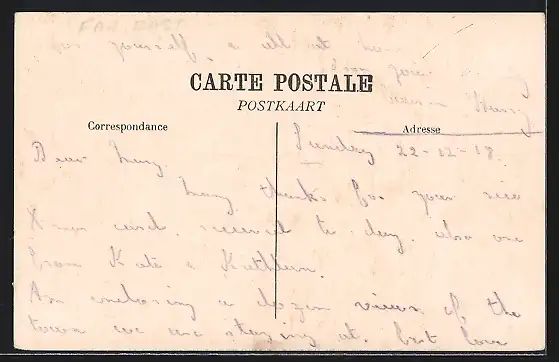 FAR EAST
for yourself, & all at home
from your
Cousin Harry
CARTE POSTALE
POSTKAART
Correspondance
Adresse
Sunday 22-12-18.
Dear
Many thanks for your nice
Xmas card, received to-day, also one
from Kate & Kathleen.
Am enclosing a dozen views of the
town we are staying at. best love